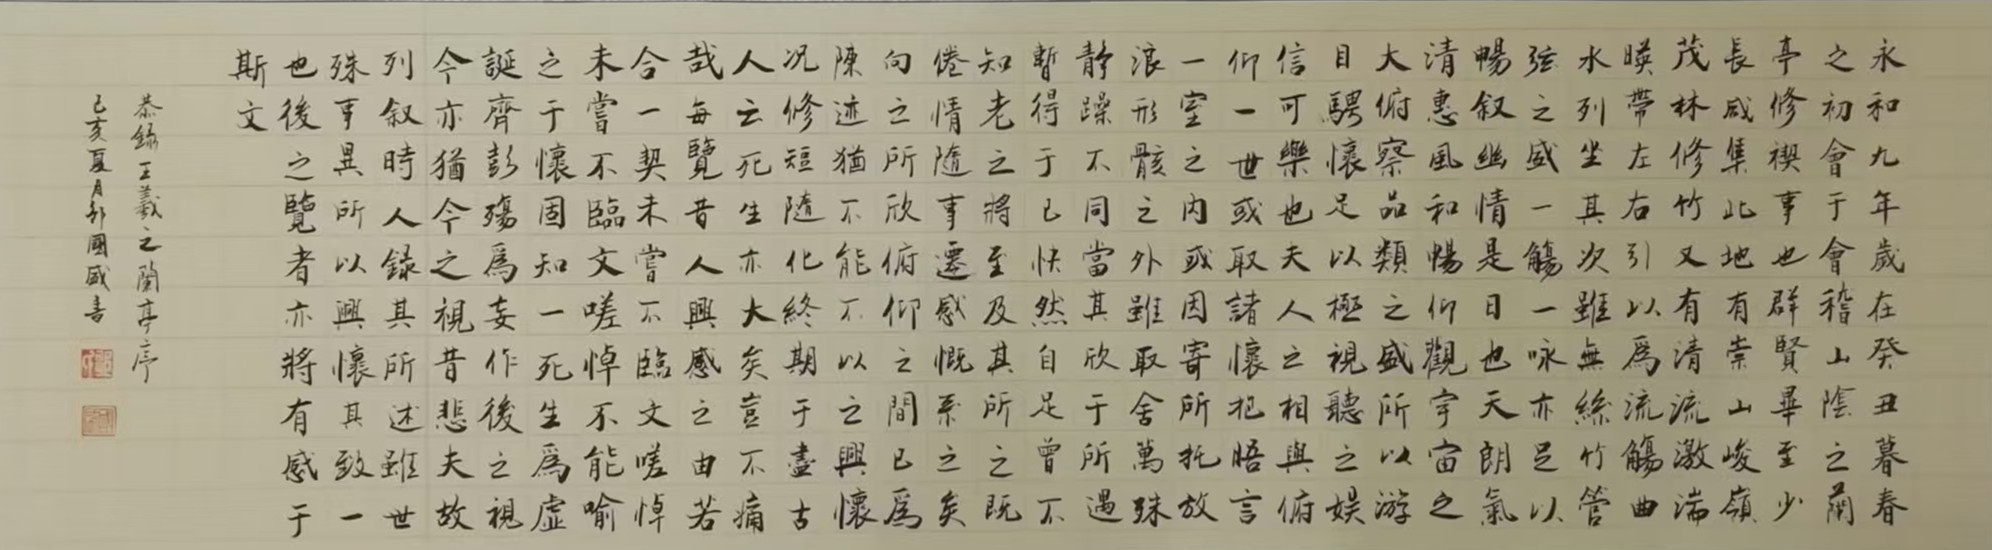 永和九年歲在癸丑暮春
之初會于會稽山陰之蘭
亭修禊事也群賢畢至少
長咸集此地有崇山峻嶺
茂林修竹又有清流激湍
暎帶左右引以爲流觴曲
水列坐其次雖無絲竹管
弦之盛一觴一咏亦足以
暢叙幽情是日也天朗氣
清惠風和暢仰觀宇宙之
大俯察品類之盛所以游
目騁懷足以極視聽之娱
信可樂也夫人之相與俯
仰一世或取諸懷抱晤言
一室之内或因寄所托放
浪形骸之外雖取舍萬殊
靜躁不同當其欣于所遇
暫得于己快然自足曾不
知老之將至及其所之既
倦情隨事遷感慨系之矣
向之所欣俯仰之間已爲
陳迹猶不能不以之興懷
况修短隨化終期于盡古
人云死生亦大矣豈不痛
哉每覽昔人興感之由若
合一契未嘗不臨文嗟悼
未嘗不臨文嗟悼不能喻
之于懷固知一死生爲虛
誕齊彭殤爲妄作後之視
今亦猶今之視昔悲夫故
列叙時人録其所述雖世
殊事異所以興懷其致一
也後之覽者亦將有感于
斯文
恭録王羲之蘭亭序
己亥夏月邹國盛書